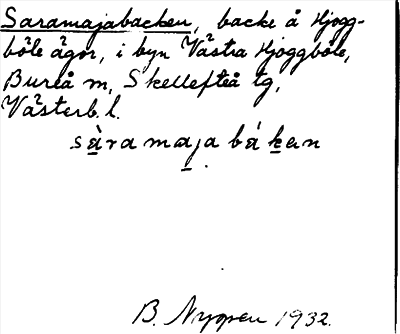 Saramajabacken, backe å Hjogg-
böle ägor, i byn Västra Hjoggböle,
Bureå m, Skellefteå tg,
Västerb. l.
sàramajabákan
B. Nygren 1932.